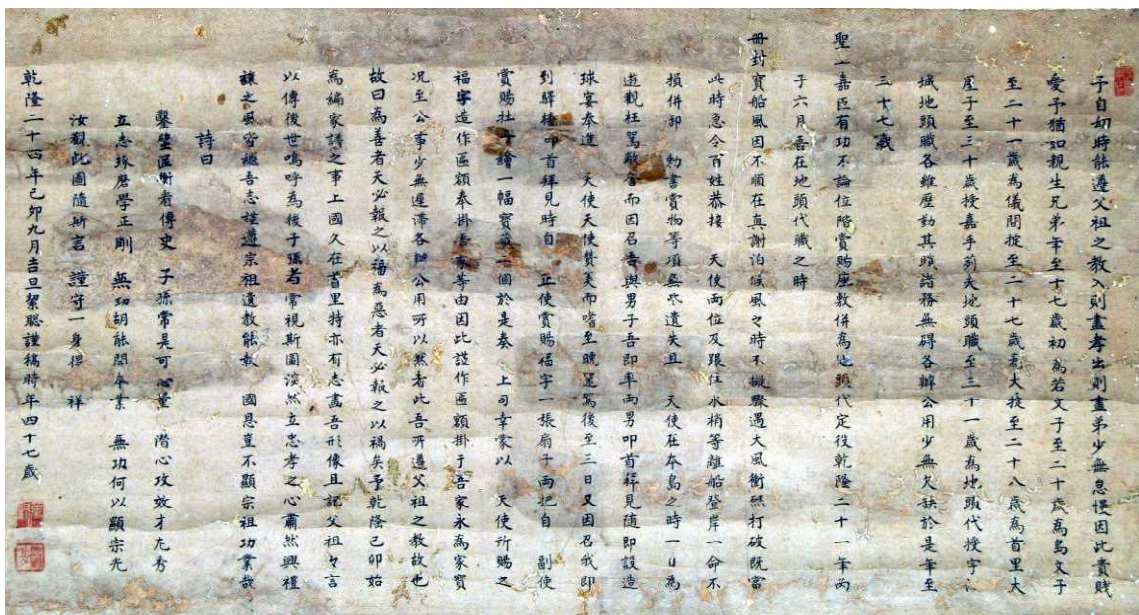 子自幼時能遵父祖之教入則盡孝出則盡弟少無怠慢因此貴賤
愛予猶如親生兄弟年至十七歲初為若文子至二十歲為島文子
至二十一歲為儀間掟至二十七歲為大掟至二十八歲為首里大
屋子至三十歲授嘉手苅夫地頭職至三十一歲為地頭代授宇
城地頭職各雖歷勤其職諸務無碍各辦公用少無欠缺於是年至
三十七歲
聖一嘉臣有功不論位階賞賜座敷併為地頭代定役乾隆二十一年丙
子六月吾在地頭代職之時
冊封寶船風因不順在真謝泊候風之時不擬驟遇大風衝礁打破既當
此時急令百姓恭接 天使兩位及跟伍水梢等離船登岸一命不
損併卸 勅書賞物等項無不遺失且 天使在本島之時一日為
遊觀枉駕敝舍而因召吾與男子吾即率兩男叩首拜見隨即設造
球宴奉進 天使天使贊美而嗜至晚罷駕後至三日又因召我即
到驛樓叩首拜見時自 正使賞賜福字一張扇子兩把自 副使
賞賜牡丹繪一幅寶 一個於是奉 上司幸蒙以 天使所賜之
福字造作匾額奉掛 家等由因此造作匾額掛于吾家永為家寶
况至公事少無遲滯各辦公用所以然者此吾所遵父祖之教故也
故曰為善者天必報之以福為惡者天必報之以禍矣予乾隆己卯始
為編家譜之事上國久在首里特亦有志畫吾形像且記父祖々言
以傳後世嗚呼為後子孫者常視斯圖淡然立忠孝之心肅然興禮
讓之風皆繼吾志謹遵宗祖遺教能報 國恩豈不顯宗祖功業哉
詩曰
鑿壁匡衡看傳史 子孫常是可心量 潛心攻效才尤秀
立志琢磨學正剛 無功胡能開本業 無功何以顯宗光
汝觀此圖隨斯言 謹守一身得 祥
乾隆二十四年己卯九月吉旦絜聰謹稿時年四十七歲